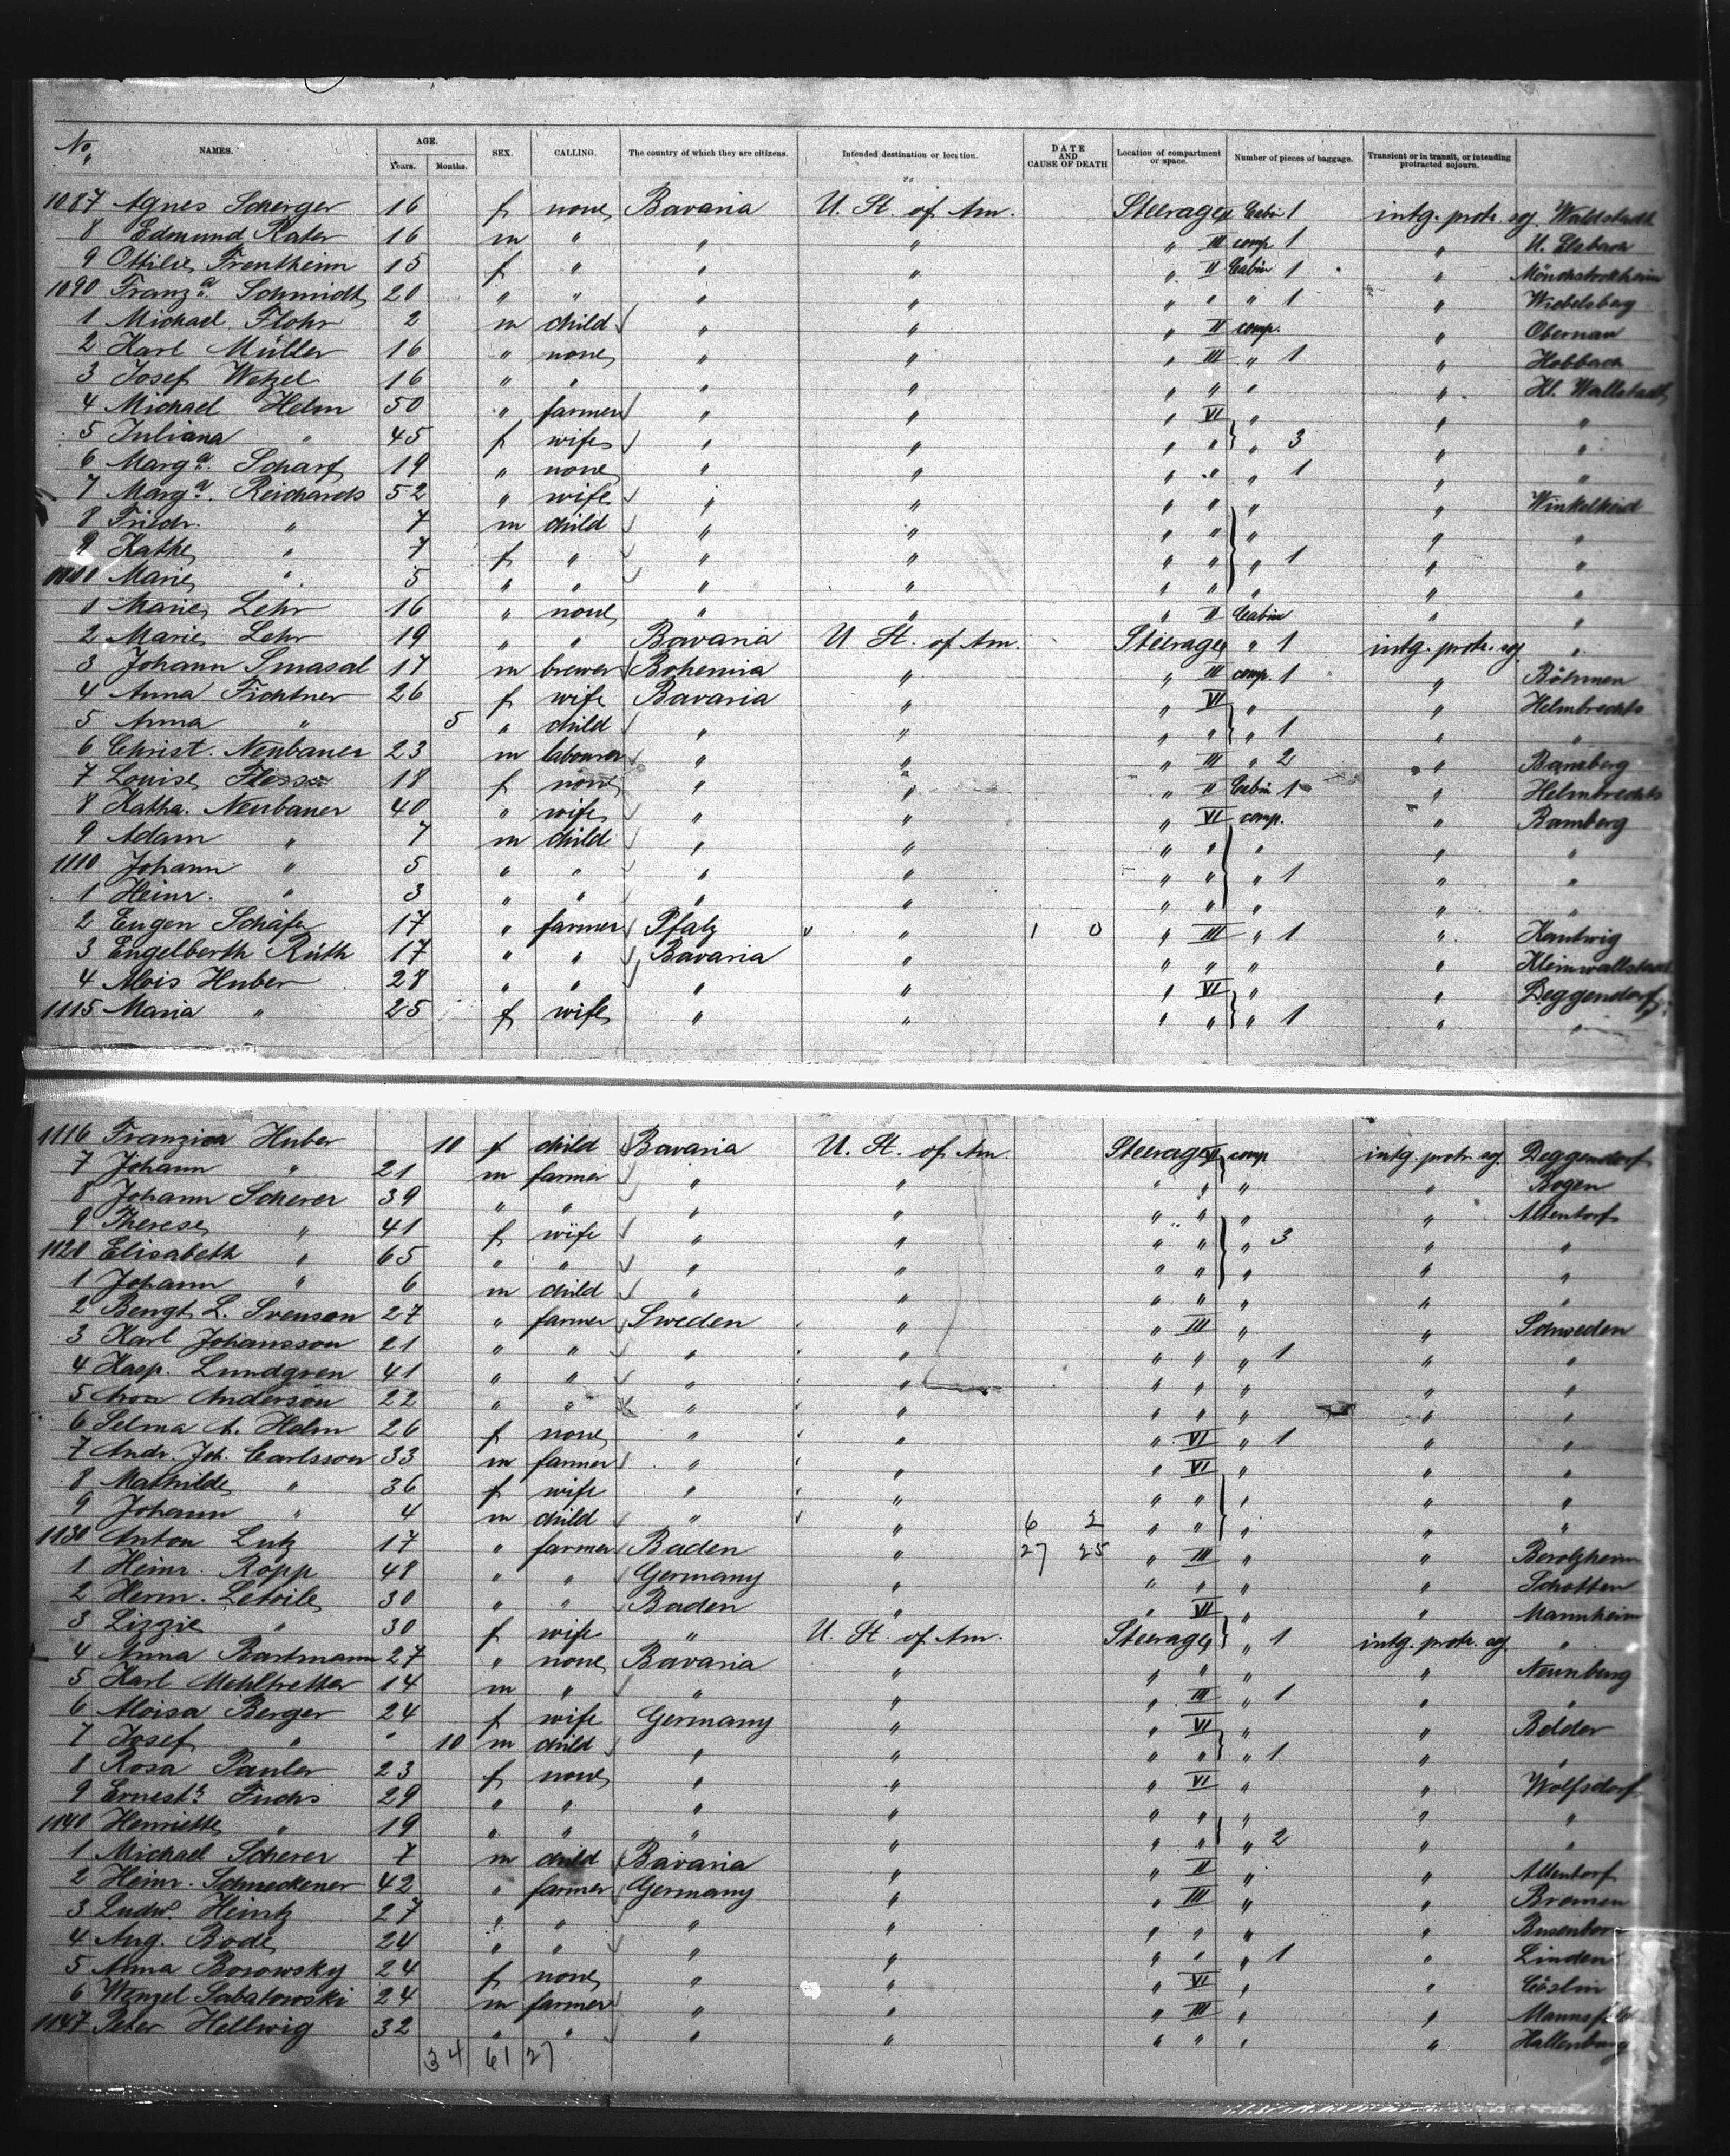 No. NAMES. AGE. Years. Months. SEX. CALLING. The country of which they are citizens. Intended destination or location. DATE AND CAUSE OF DEATH Location of compartment or space. Number of pieces of baggage. Transient or in transit, or intending protracted sojourn.
1087 Agnes Scherger 16 f none Bavaria U. St. of Am. Steerage Cabin 1 intg. protr. soj. Waldstadt
8 Edmund Rater 16 m " " " " III comp. 1 " U. Elsbach
9 Ottilie Trentheim 15 f " " " " II Cabin 1 " Mönchstockheim
1090 Franz.a Schmidt 20 " " " " " " " 1 " Wiebelsberg
1 Michael Flohr 2 m child " " " II comp. " Obernau
2 Karl Müller 16 " none " " " III " 1 " Hobbach
3 Josef Wetzel 16 " " " " " " " " Kl. Wallstadt
4 Michael Helm 50 " farmer " " " VI " " "
5 Juliana " 45 f wife " " " " " 3 " "
6 Marg.a Scharf 19 " none " " " " 1 " "
7 Marg.a Reichards 52 " wife " " " " " " Winkelheid
8 Friedr. " 7 m child " " " " " " "
9 Kathe " 7 f " " " " " " 1 " "
1100 Marie " 5 " " " " " " " " "
1 Marie Lehr 16 " none " " " II Cabin " "
2 Marie Lehr 19 " " Bavaria U. St. of Am. Steerage " 1 intg. protr. soj. "
3 Johann Smasal 17 m brewer Bohemia " " III comp. 1 " Böhmen
4 Anna Fichtner 26 f wife Bavaria " " VI " " Helmbrechts
5 Anna " 5 " child " " " " " 1 " "
6 Christ. Neubauer 23 m labourer " " " III " 2 " Bamberg
7 Louise Flessa 18 f none " " " II Cabin 1 " Helmbrechts
8 Katha. Neubauer 40 " wife " " " VI comp. " Bamberg
9 Adam " 7 m child " " " " " " "
1110 Johann " 5 " " " " " " " 1 " "
1 Heinr. " 3 " " " " " " " "
2 Eugen Schäfer 17 " farmer Pfalz " 1 0 " III " 1 " Kantwig
3 Engelberth Rüth 17 " " Bavaria " " " " " Kleinwallstadt
4 Alois Huber 28 " " " " " VI " " Deggendorf
1115 Maria " 25 f wife " " " " " 1 " "
1116 Franzisca Huber 10 f child Bavaria U. St. of Am. Steerage comp intg. protr. soj. Deggendorf
7 Johann " 21 m farmer " " " " " " Bogen
8 Johann Scherer 39 " " " " " " " " Altendorf
9 Therese " 41 f wife " " " " " 3 " "
1120 Elisabeth " 65 " " " " " " " " "
1 Johann " 6 m child " " " " " " "
2 Bengt L. Svenson 27 " farmer Sweden " " III " " Schweden
3 Karl Johansson 21 " " " " " " " 1 " "
4 Kasp. Lundgren 41 " " " " " " " " "
5 Aron Anderson 22 " " " " " " " " "
6 Selma A. Holm 26 f none " " " VI " 1 " "
7 Andr. Joh. Carlsson 33 m farmer " " " VI " " "
8 Mathilde " 36 f wife " " " " " " "
9 Johann " 4 m child " " 6 2 " " " " "
1130 Anton Lutz 17 " farmer Baden " 27 25 " III " " Berolzheim
1 Heinr. Ropp 48 " " Germany " " " " " Schotten
2 Herm. Letoile 30 " " Baden " " VI " " Mannheim
3 Lizzie " 30 f wife " U. St. of Am. Steerage " 1 intg. protr. soj. "
4 Anna Bartmann 27 " none Bavaria " " " " Neunburg
5 Karl Mehltretter 14 m " " " " III " 1 " "
6 Aloisa Berger 24 f wife Germany " " VI " "
7 Josef " " 10 m child " " " " " 1 " "
8 Rosa Pauler 23 f none " " " VI " " Wolfsdorf
9 Ernest.e Fuchs 29 " " " " " " " " "
1140 Henriette " 19 " " " " " " " 2 " "
1 Michael Scherer 7 m child Bavaria " " II " " Altendorf
2 Heinr. Schneckener 42 " farmer Germany " " III " " Bremen
3 Ludw. Heintz 27 " " " " " " " "
4 Aug. Bode 24 " " " " " " " 1 " Linden
5 Anna Borowsky 24 f none " " " VI " " Cöslin
6 Wenzel Sabatowski 24 m farmer " " " III " "
1147 Peter Hellwig 32 " " " " " " " " Hallenburg
34 61 27